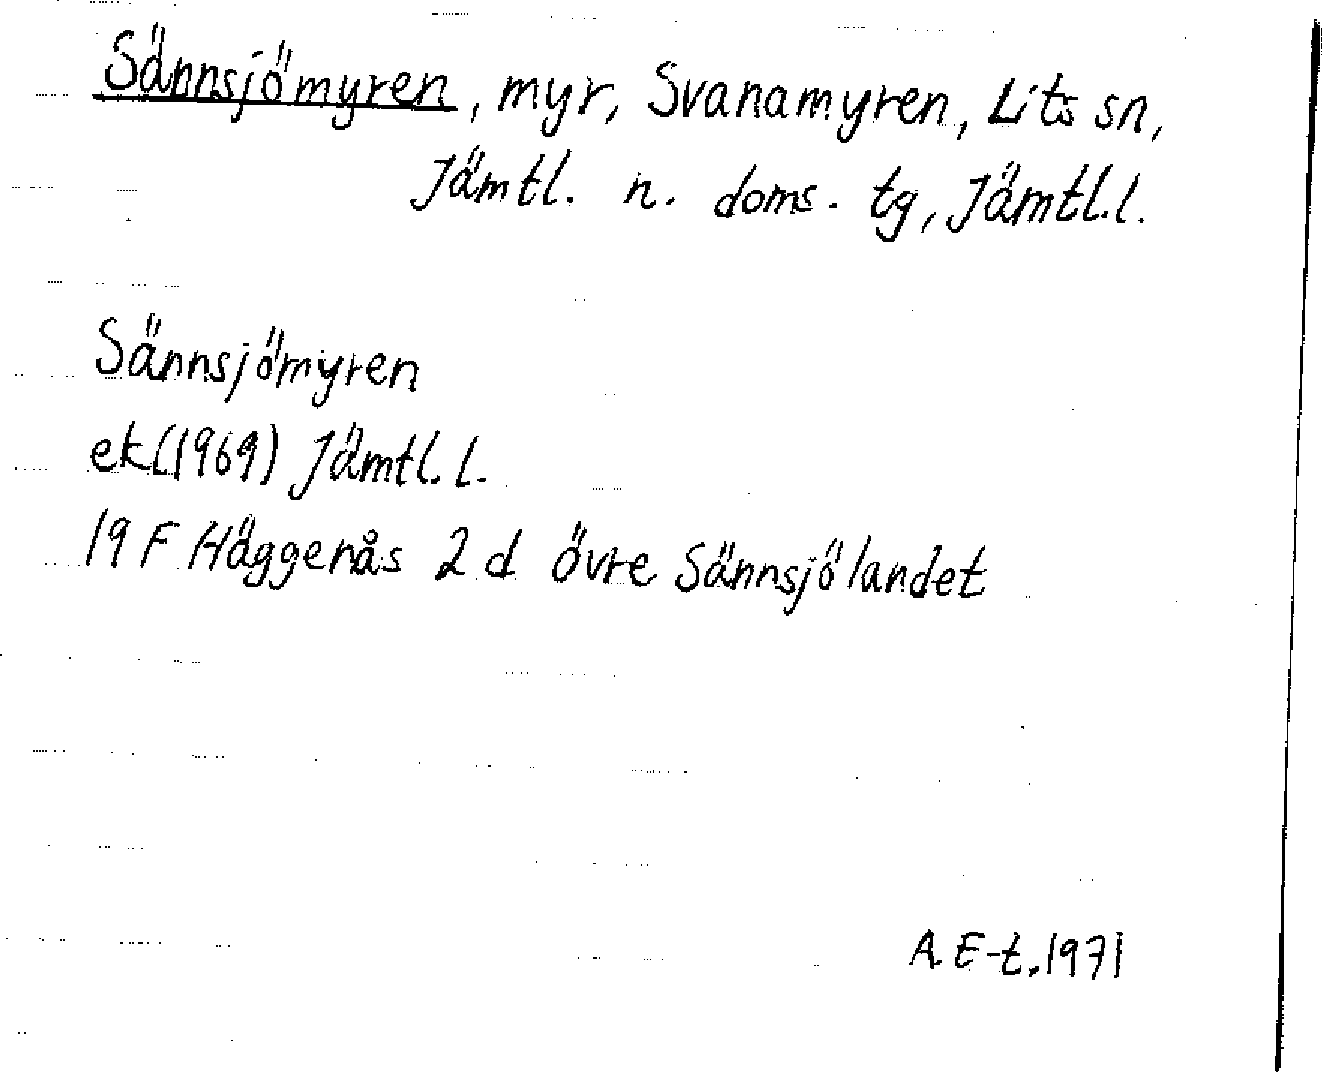 Sännsjömyren, myr, Svanamyren, Lits sn,
Jämtl. n. doms. tg, Jämtl.l.
Sännsjömyren
ek(1969) Jämtl. l.
19 F Häggenås 2 d övre Sännsjölandet
A. E-t. 1971